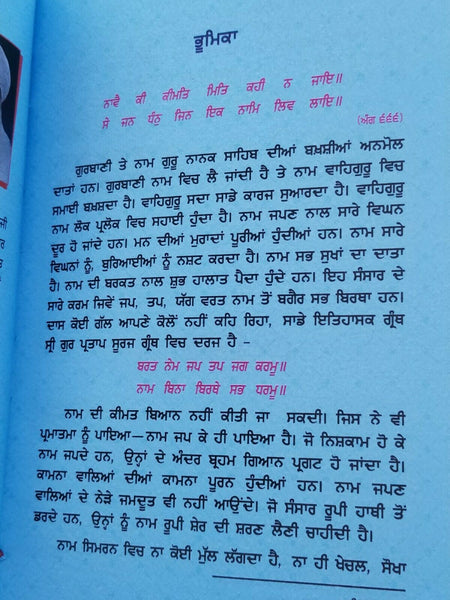 ਭੂਮਿਕਾ
ਨਾਵੈ ਕੀ ਕੀਮਤਿ ਮਿਤਿ ਕਹੀ ਨ ਜਾਇ॥
ਸੇ ਜਨ ਧੰਨੁ ਜਿਨ ਇਕ ਨਾਮਿ ਲਿਵ ਲਾਇ॥
(ਅੰਗ ੬੬੬)
ਗੁਰਬਾਣੀ ਤੇ ਨਾਮ ਗੁਰੂ ਨਾਨਕ ਸਾਹਿਬ ਦੀਆਂ ਬਖ਼ਸ਼ੀਆਂ ਅਨਮੋਲ
ਦਾਤਾਂ ਹਨ। ਗੁਰਬਾਣੀ ਨਾਮ ਵਿਚ ਲੈ ਜਾਂਦੀ ਹੈ ਤੇ ਨਾਮ ਵਾਹਿਗੁਰੂ ਵਿਚ
ਸਮਾਈ ਬਖ਼ਸ਼ਦਾ ਹੈ। ਵਾਹਿਗੁਰੂ ਸਦਾ ਸਾਡੇ ਕਾਰਜ ਸੁਆਰਦਾ ਹੈ। ਵਾਹਿਗੁਰੂ
ਨਾਮ ਲੋਕ ਪ੍ਰਲੋਕ ਵਿਚ ਸਹਾਈ ਹੁੰਦਾ ਹੈ। ਨਾਮ ਜਪਣ ਨਾਲ ਸਾਰੇ ਵਿਘਨ
ਦੂਰ ਹੋ ਜਾਂਦੇ ਹਨ। ਮਨ ਦੀਆਂ ਮੁਰਾਦਾਂ ਪੂਰੀਆਂ ਹੁੰਦੀਆਂ ਹਨ। ਨਾਮ ਸਾਰੇ
ਵਿਘਨਾਂ ਨੂੰ, ਬੁਰਿਆਈਆਂ ਨੂੰ ਨਸ਼ਟ ਕਰਦਾ ਹੈ। ਨਾਮ ਸਭ ਸੁਖਾਂ ਦਾ ਦਾਤਾ
ਹੈ। ਨਾਮ ਦੀ ਬਰਕਤ ਨਾਲ ਸ਼ੁਭ ਹਾਲਾਤ ਪੈਦਾ ਹੁੰਦੇ ਹਨ। ਇਹ ਸੰਸਾਰ ਦੇ
ਸਾਰੇ ਕਰਮ ਜਿਵੇਂ ਜਪ, ਤਪ, ਯੱਗ ਵਰਤ ਨਾਮ ਤੋਂ ਬਗੈਰ ਸਭ ਬਿਰਥਾ ਹਨ।
ਦਾਸ ਕੋਈ ਗੱਲ ਆਪਣੇ ਕੋਲੋਂ ਨਹੀਂ ਕਹਿ ਰਿਹਾ, ਸਾਡੇ ਇਤਿਹਾਸਕ ਗ੍ਰੰਥ
ਸ੍ਰੀ ਗੁਰ ਪ੍ਰਤਾਪ ਸੂਰਜ ਗ੍ਰੰਥ ਵਿਚ ਦਰਜ ਹੈ –
ਬਰਤ ਨੇਮ ਜਪ ਤਪ ਜਗ ਕਰਮੂ॥
ਨਾਮ ਬਿਨਾ ਬਿਰਥੇ ਸਭ ਧਰਮੂ॥
ਨਾਮ ਦੀ ਕੀਮਤ ਬਿਆਨ ਨਹੀਂ ਕੀਤੀ ਜਾ ਸਕਦੀ। ਜਿਸ ਨੇ ਵੀ
ਪ੍ਰਮਾਤਮਾ ਨੂੰ ਪਾਇਆ—ਨਾਮ ਜਪ ਕੇ ਹੀ ਪਾਇਆ ਹੈ। ਜੋ ਨਿਸ਼ਕਾਮ ਹੋ ਕੇ
ਨਾਮ ਜਪਦੇ ਹਨ, ਉਨ੍ਹਾਂ ਦੇ ਅੰਦਰ ਬ੍ਰਹਮ ਗਿਆਨ ਪ੍ਰਗਟ ਹੋ ਜਾਂਦਾ ਹੈ।
ਕਾਮਨਾ ਵਾਲਿਆਂ ਦੀਆਂ ਕਾਮਨਾ ਪੂਰਨ ਹੁੰਦੀਆਂ ਹਨ। ਨਾਮ ਜਪਣ
ਵਾਲਿਆਂ ਦੇ ਨੇੜੇ ਜਮਦੂਤ ਵੀ ਨਹੀਂ ਆਉਂਦੇ। ਜੋ ਸੰਸਾਰ ਰੂਪੀ ਹਾਥੀ ਤੋਂ
ਡਰਦੇ ਹਨ, ਉਨ੍ਹਾਂ ਨੂੰ ਨਾਮ ਰੂਪੀ ਸ਼ੇਰ ਦੀ ਸ਼ਰਣ ਲੈਣੀ ਚਾਹੀਦੀ ਹੈ।
ਨਾਮ ਸਿਮਰਨ ਵਿਚ ਨਾ ਕੋਈ ਮੁੱਲ ਲੱਗਦਾ ਹੈ, ਨਾ ਹੀ ਖੇਚਲ, ਸੌਖਾ